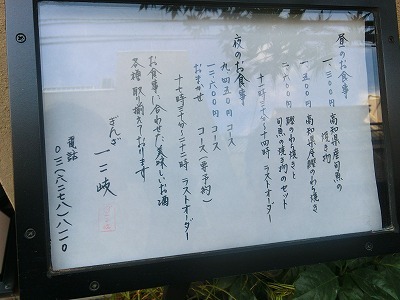 昼のお食事
一、三〇〇円 高知県産旬魚の
焼き物
一、五〇〇円 高知県産鰹のわら焼き
二、六〇〇円 鰹のわら焼きと
旬魚の焼き物のセット
十一時三十分〜十四時 ラストオーダー
夜のお食事
九、四五〇円 コース
一二、六〇〇円 コース
おまかせ コース(要予約)
十七時三十分〜二十二時 ラストオーダー
お食事に合わせた美味しいお酒
各種取り揃えております
ぎんざ
一二岐
電話